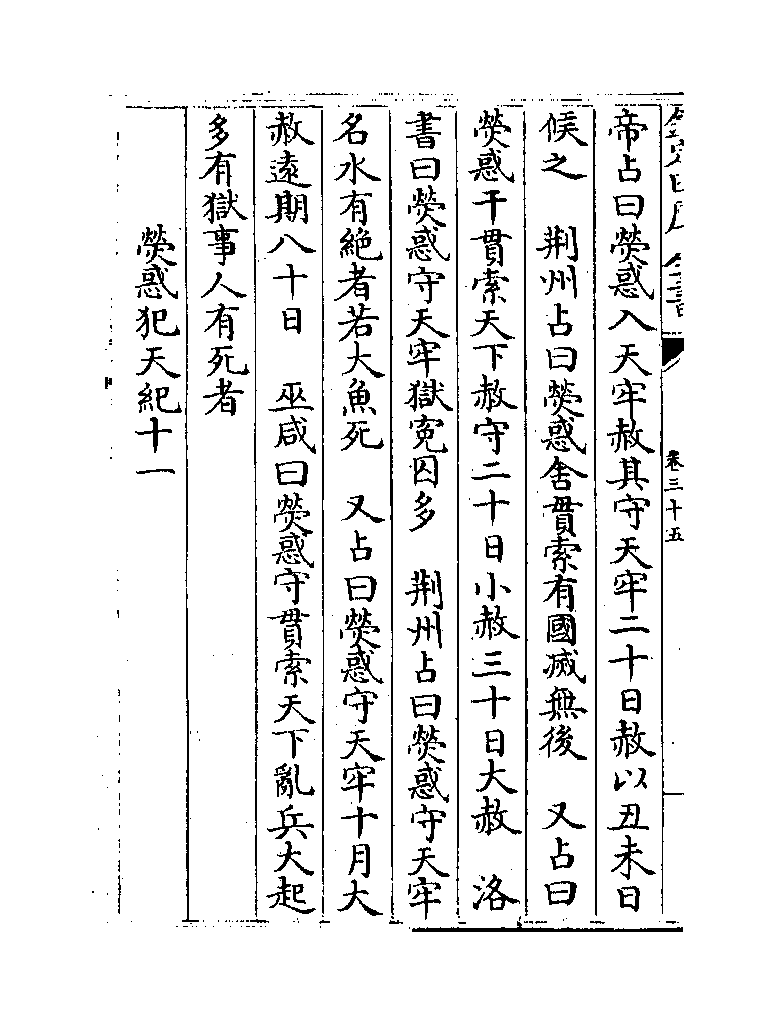 欽定四庫全書
卷三十五
帝占曰熒惑入天牢赦其守天牢二十日赦以丑未日
候之　荆州占曰熒惑舍貫索有國滅無後　又占曰
熒惑干貫索天下赦守二十日小赦三十日大赦　洛
書曰熒惑守天牢獄寃囚多　荆州占曰熒惑守天牢
名水有絶者若大魚死　又占曰熒惑守天牢十月大
赦遠期八十日　巫咸曰熒惑守貫索天下亂兵大起
多有獄事人有死者
熒惑犯天紀十一